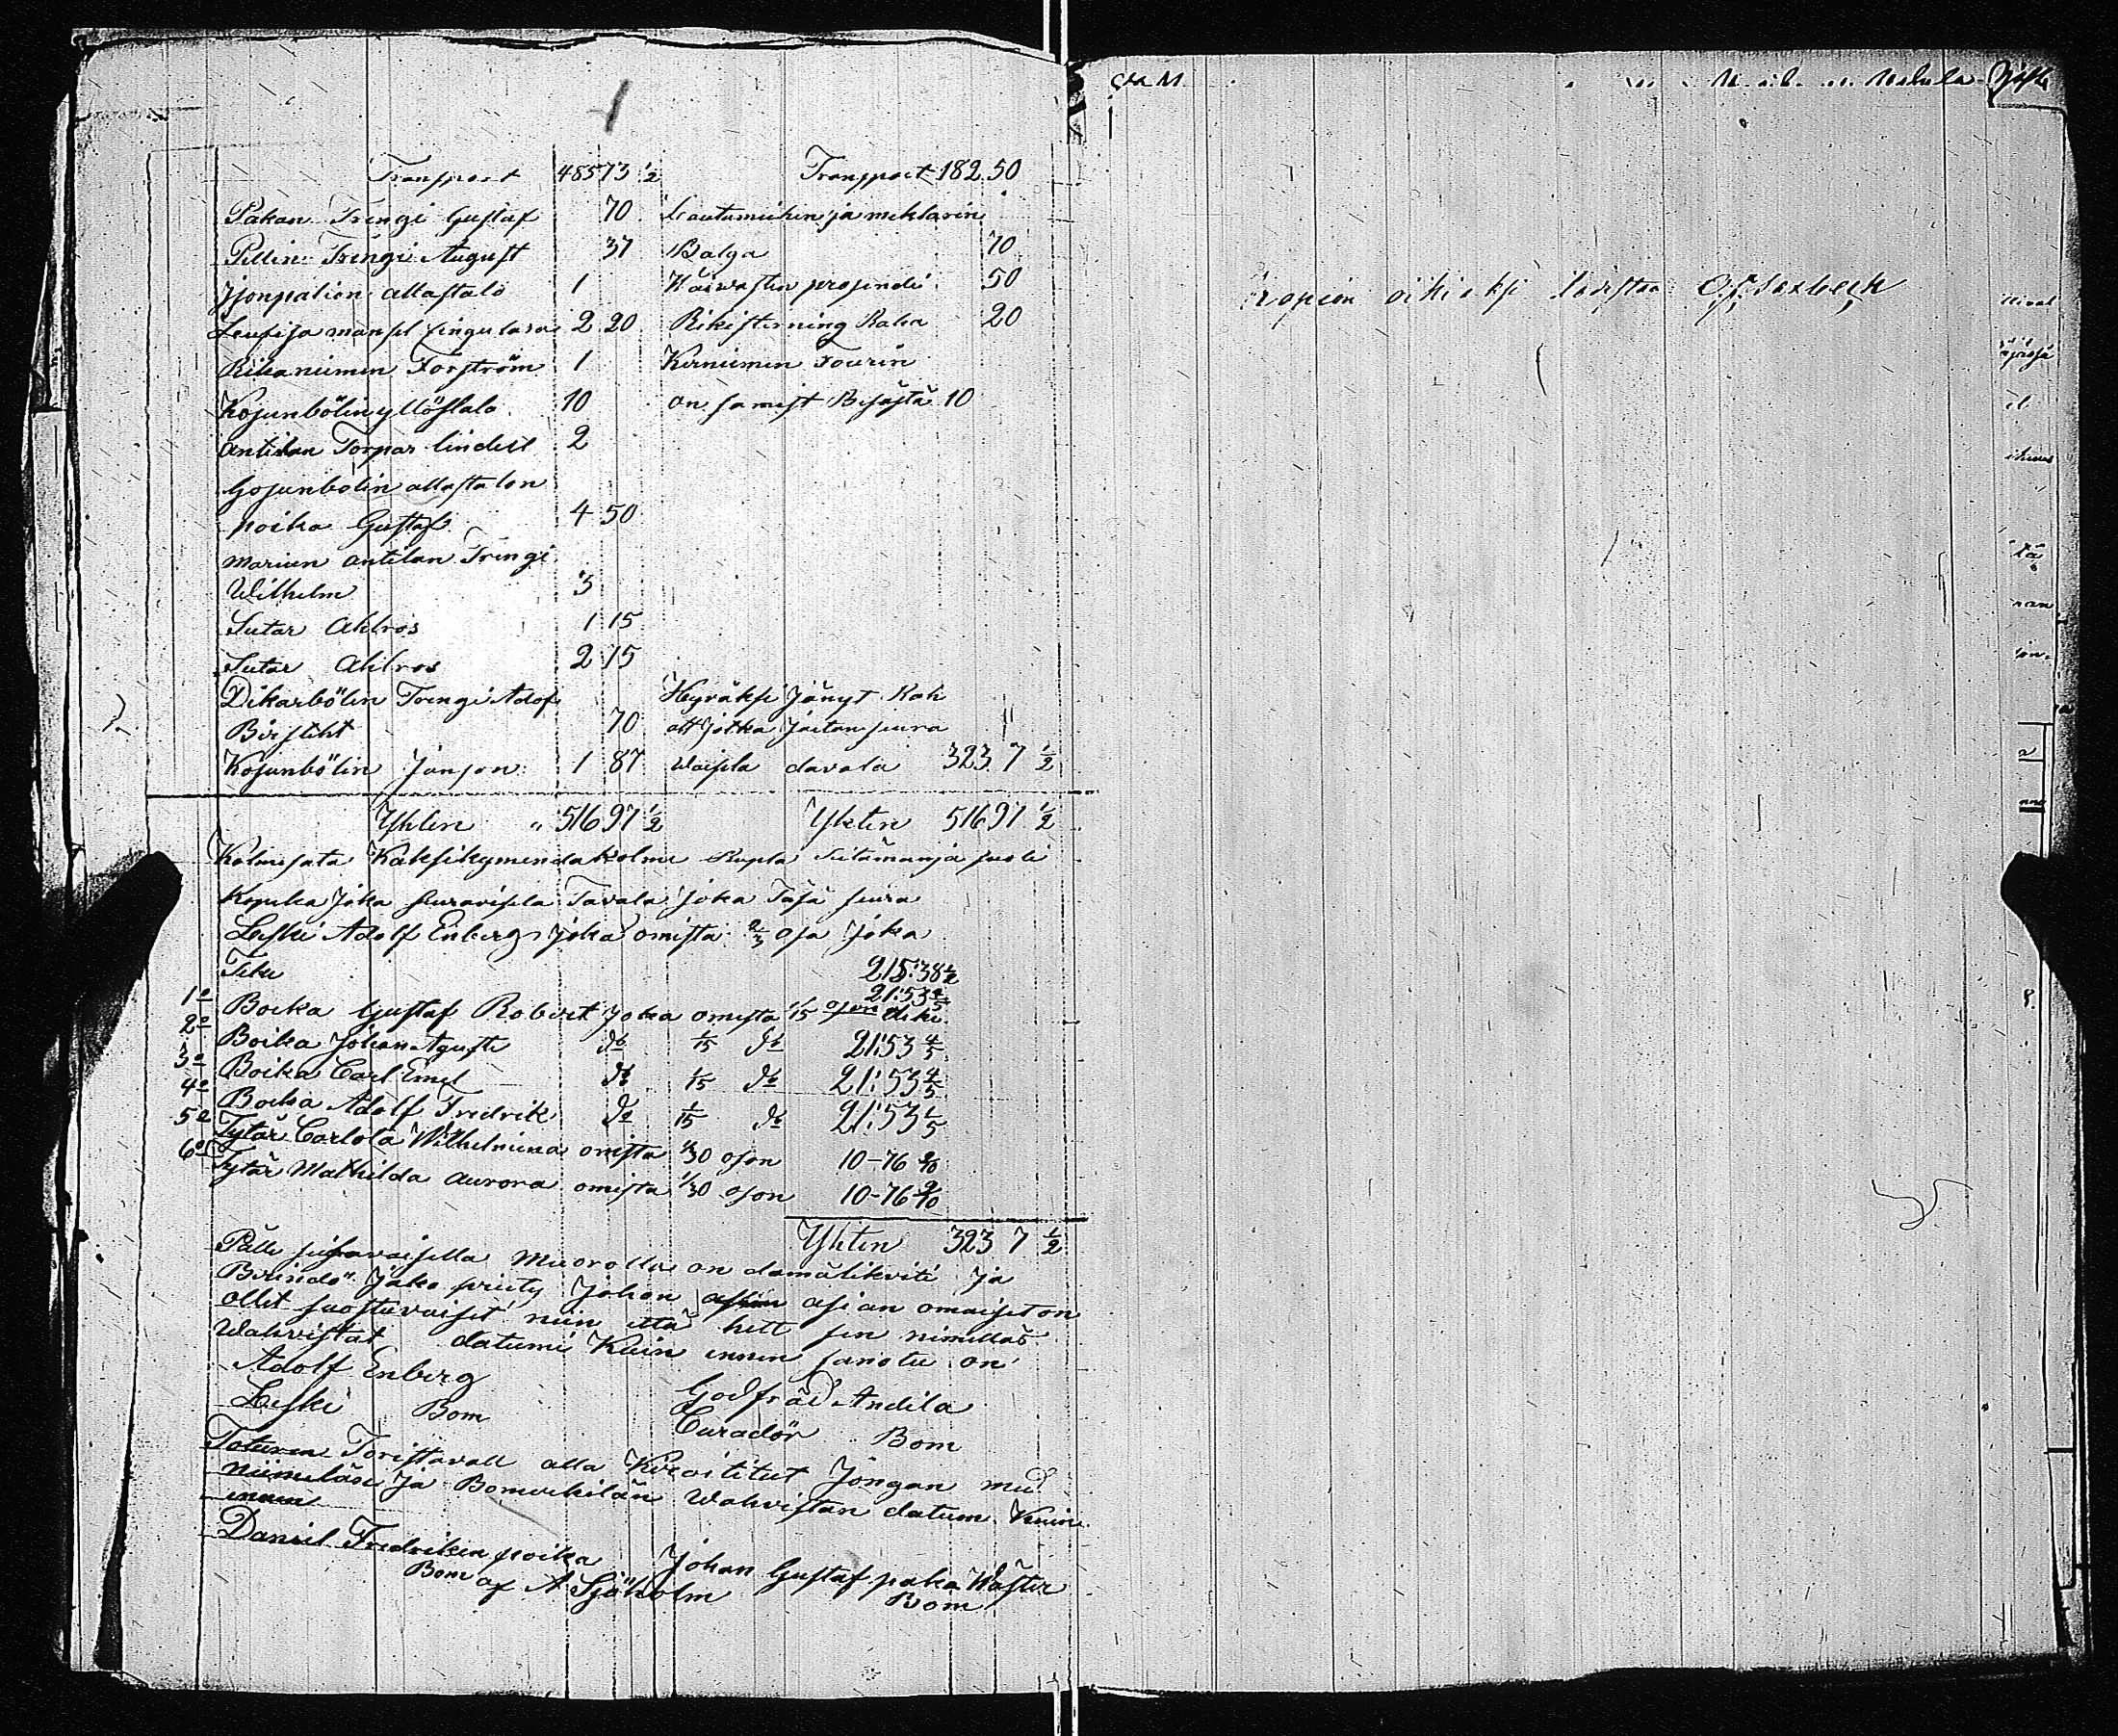 Transport 485 73 ½ Transport 182 50
Pakan Trengi Gustaf 70 Lautamiehen ja meklarin
Pellin Trengi August 37 Balga 70
Jsonpalion allastalo 1 Käswastin prosendi 50
Leusi ja mansel singulara 2 20 Rikistirning Raha 20
Rikaniimen Forström 1 Kirniimen Fourin
Kojunbölin yllöstalo 10 on samist Besästä 10
antilan Torpar lindell 2
Gojunbölin allastalon
poika Gustaf 4 50
marien antilan Trengi
Wilhelm 3
Sutar Ahlros 1 15
Sutar Ahlros 2 15
Dikarbölin Trengi Adof Hyräksi Jänyt Kah
Birstiht 70 att jotka Jaetan seura
Kojunbölin Janson 1 87 waisla davala 323 7 ½
Yhten " 516 97 ½ Yhten 516 97 ½
Kolmesata Kaksikymendakolme Rupla Seitämänja puoli
Kopeka Joka seuravisla Tavala joka Tasa seura
Leski Adolf Enberg joka omista ⅔ osa joka
Teke 215:38 ½
21:53 ⅘
1o Boika Gustaf Robert joka omista 1/15 oson deke
2o Boika Johan Agusti do 1/15 do 21:53 ⅘
3o Boika Carl Emel do 1/15 do 21:53 ⅘
4o Boika Adolf Fredrik do 1/15 do 21:53 ⅘
5o Tytär Carlota Wilhelmina omista 1/30 oson 10-76 9/10
6o Tytär Mathilda aurora omista 1/30 oson 10-76 9/10
Yhten 323 7 ½
Pälle seuravaisella Muorolla on damälikviti ja
Birindö Jako priity Johon asian omaiset on
ollit suostuvaiset niin että hett sen nimilläs
Wahvistat datumi Kuin ennen sanotu on
Adolf Enberg
Leski Bom Godfräd Andila
Curadör Bom
Toturen Toristavall alla Kirioititut Jongan med
niimeläse Ja Bomerkilän Wahvistan datum Kuin
ennen
Daniel Fredriken poika Johan Gustaf paka Waster
Bom Bom
af A Sjöholm
kopion oikiaksi todistaa